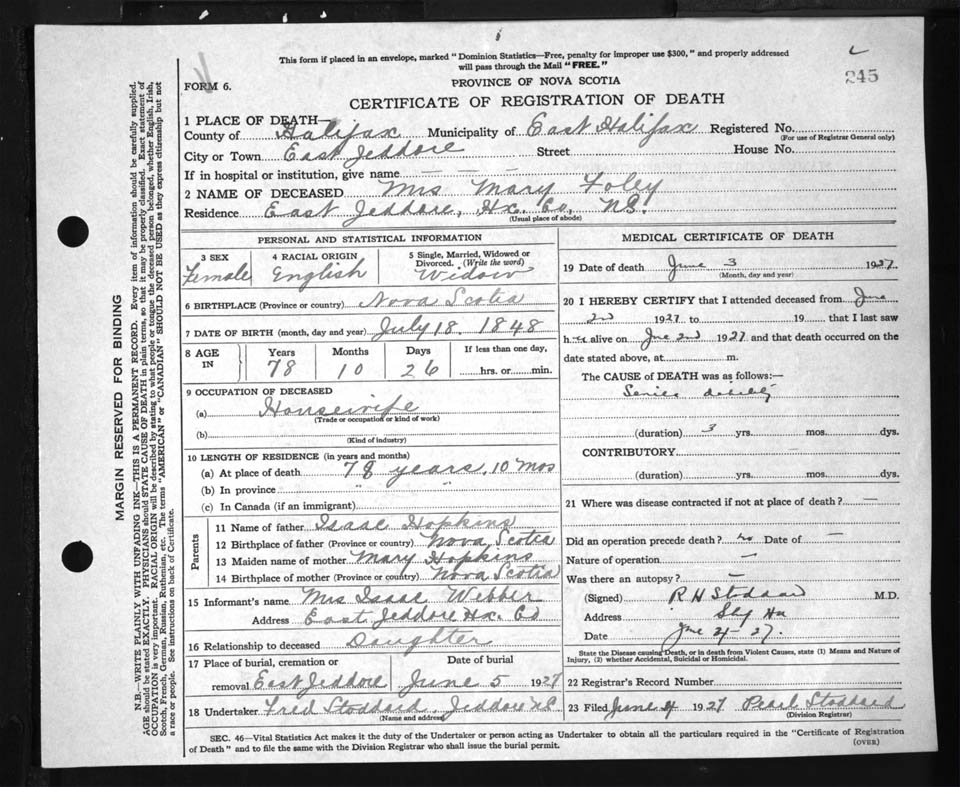 This form if placed in an envelope, marked "Dominion Statistics—Free, penalty for improper use $300," and properly addressed
will pass through the Mail "FREE."
245
FORM 6.
PROVINCE OF NOVA SCOTIA
CERTIFICATE OF REGISTRATION OF DEATH
1 PLACE OF DEATH—
County of Halifax Municipality of East Halifax Registered No.
(For use of Registrar General only)
City or Town East Jeddore Street House No.
If in hospital or institution, give name
2 NAME OF DECEASED Mrs Mary Foley
Residence East Jeddore, Hx. Co, N.S.
(Usual place of abode)
PERSONAL AND STATISTICAL INFORMATION
3 SEX Female
4 RACIAL ORIGIN English
5 Single, Married, Widowed or
Divorced. (Write the word)
Widow
6 BIRTHPLACE (Province or country) Nova Scotia
7 DATE OF BIRTH (month, day and year) July 18. 1848
8 AGE IN Years 78 Months 10 Days 26 If less than one day, hrs. or min.
9 OCCUPATION OF DECEASED
(a) Housewife
(Trade or occupation or kind of work)
(b)
(Kind of industry)
10 LENGTH OF RESIDENCE (in years and months)
(a) At place of death 78 years, 10 mos
(b) In province " "
(c) In Canada (if an immigrant)
Parents
11 Name of father Isaac Hopkins
12 Birthplace of father (Province or country) Nova Scotia
13 Maiden name of mother Mary Hopkins
14 Birthplace of mother (Province or country) Nova Scotia
15 Informant's name Mrs Isaac Webber
Address East Jeddore Hx. Co
16 Relationship to deceased Daughter
17 Place of burial, cremation or Date of burial
removal East Jeddore June 5 1927
18 Undertaker Fred Stoddard, Jeddore N.S
(Name and address)
MEDICAL CERTIFICATE OF DEATH
19 Date of death June 3 1927
(Month, day and year)
20 I HEREBY CERTIFY that I attended deceased from June
2nd 1927 to 19 that I last saw
h alive on June 2nd 1927 and that death occurred on the
date stated above, at m.
The CAUSE of DEATH was as follows:—
(duration) 3 yrs. mos. dys.
CONTRIBUTORY
(duration) yrs. mos. dys.
21 Where was disease contracted if not at place of death? —
Did an operation precede death? no Date of —
Nature of operation —
Was there an autopsy? —
(Signed) R H Stoddard M.D.
Address
Date June 4 - 27.
State the Disease causing Death, or in death from Violent Causes, state (1) Means and Nature of
Injury, (2) whether Accidental, Suicidal or Homicidal.
22 Registrar's Record Number
23 Filed June 4 1927 Pearl Stoddard
(Division Registrar)
SEC. 46—Vital Statistics Act makes it the duty of the Undertaker or person acting as Undertaker to obtain all the particulars required in the "Certificate of Registration
of Death" and to file the same with the Division Registrar who shall issue the burial permit.
(OVER)
MARGIN RESERVED FOR BINDING
N.B.—WRITE PLAINLY WITH UNFADING INK—THIS IS A PERMANENT RECORD. Every item of information should be carefully supplied.
AGE should be stated EXACTLY. PHYSICIANS should STATE CAUSE OF DEATH in plain terms, so that it may be properly classified. Exact statement of
OCCUPATION is very important. RACIAL ORIGIN will be described by stating to what people or tongue the deceased person belonged, whether English, Irish,
Scotch, French, German, Russian, Ruthenian, etc. The terms "AMERICAN" or "CANADIAN" SHOULD NOT BE USED as they express citizenship but not
a race or people. See instructions on back of Certificate.